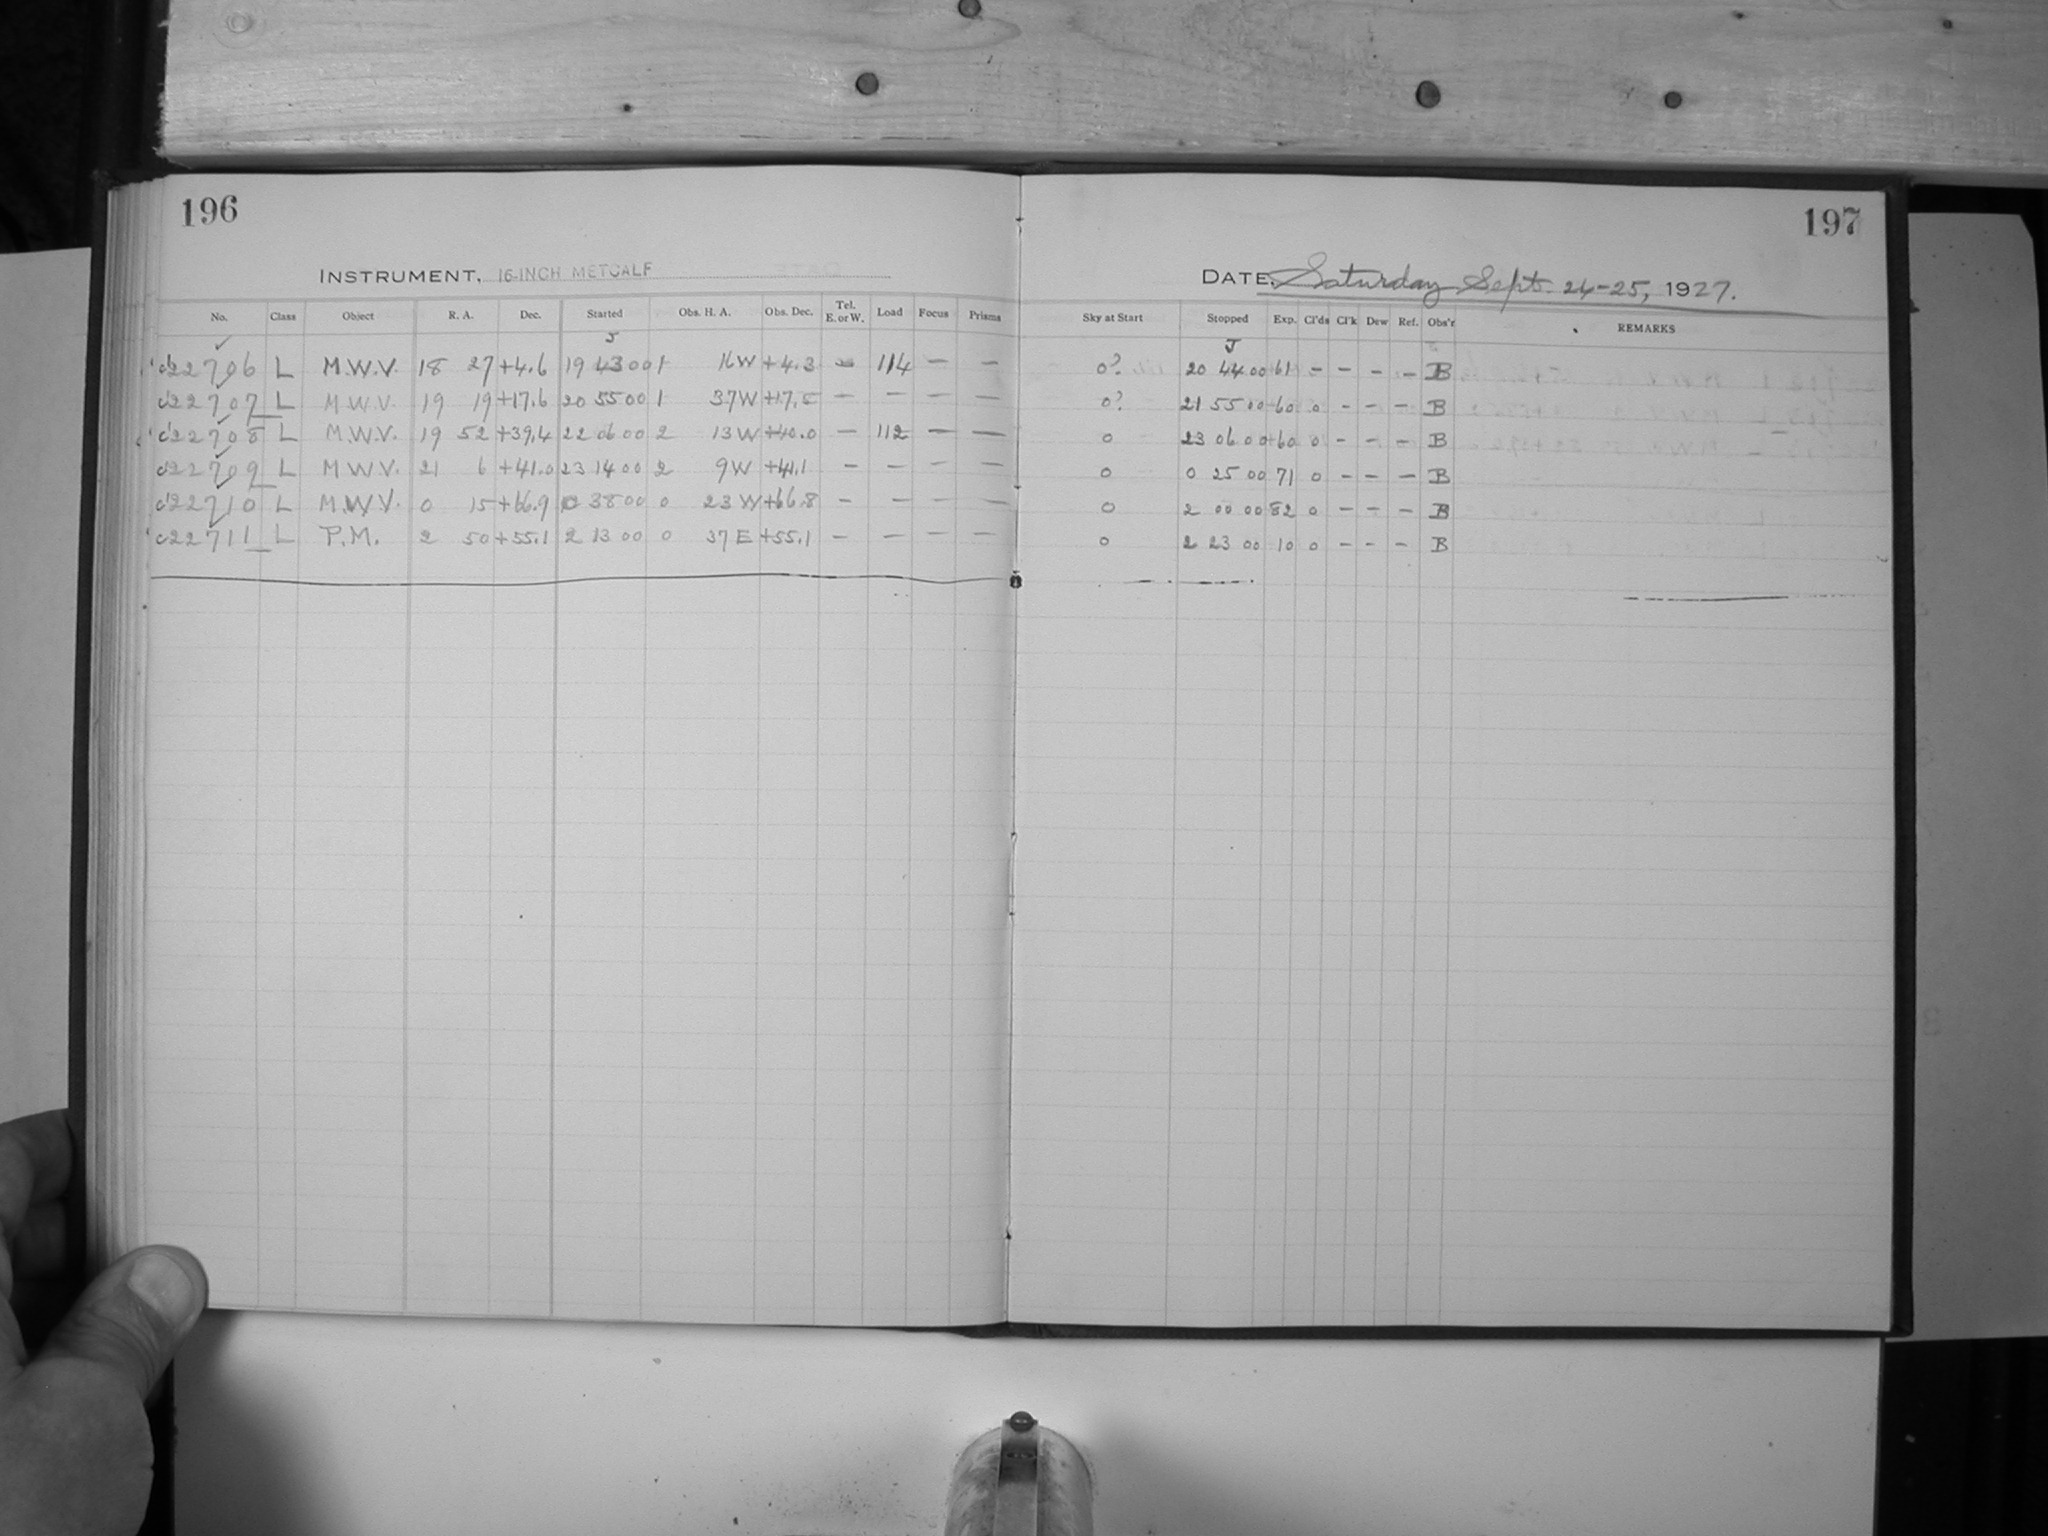 196
INSTRUMENT. 16-INCH METCALF
No. Class Object R. A. Dec. Started Obs. H. A. Obs. Dec. Tel. E. or W. Load Focus Prisms
J
22706 L M.W.V. 18 27 +4.6 19 43 00 1 16 W +4.3 — 114 — —
22707 L M.W.V. 19 19 +17.6 20 55 00 1 37 W +17.5 — — — —
22708 L M.W.V. 19 52 +39.4 22 06 00 2 13 W +40.0 — 112 — —
22709 L M.W.V. 21 6 +41.0 23 14 00 2 9 W +41.1 — — — —
22710 L M.W.V. 0 15 +66.9 0 38 00 0 23 W +66.8 — — — —
22711 L P.M. 2 50 +55.1 2 13 00 0 37 E +55.1 — — — —
197
DATE. Saturday Sept. 24-25, 1927.
Sky at Start Stopped Exp. Cl'ds Cl'k Dew Ref. Obs'r REMARKS
J
0? 20 44 00 61 – – – – B
0? 21 55 00 60 0 – – – B
0 23 06 00 60 0 – – – B
0 0 25 00 71 0 – – – B
0 2 00 00 82 0 – – – B
0 2 23 00 10 0 – – – B